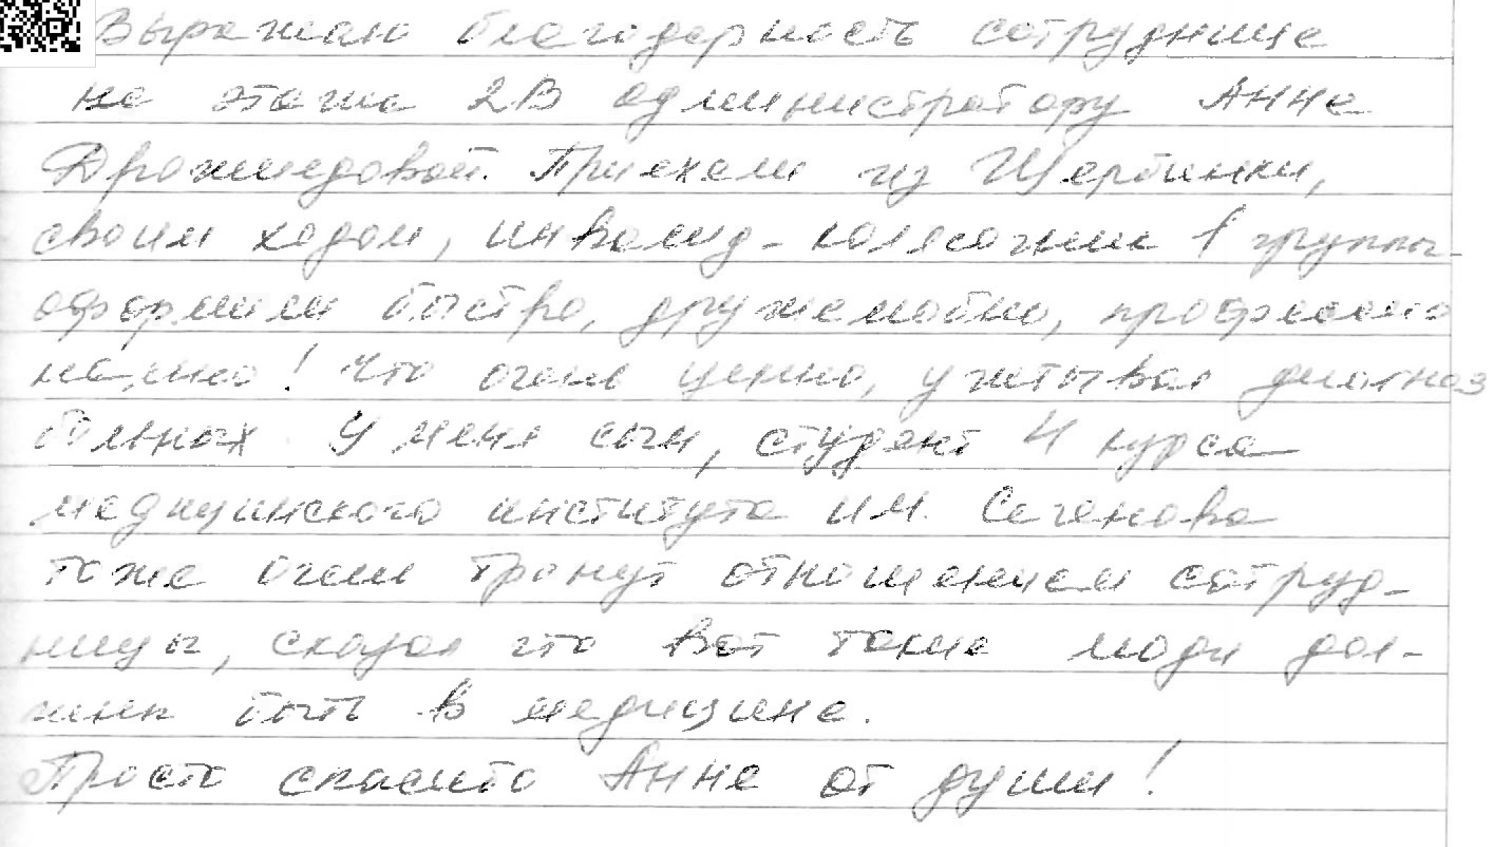 Выражаю благодарность сотруднице
на этаже 2В администратору Анне
Приехали из Щербинки,
своим ходом, инвалид-колясочник 1 группы
оформили быстро, дружелюбно, профессио
нально! Что очень ценно, учитывая диагноз
больных. У меня сын, студент 4 курса
медицинского института им. Сеченова
тоже очень тронут отношением сотруд-
ницы, сказал что вот такие люди дол-
жны быть в медицине.
Просто спасибо Анне от души!